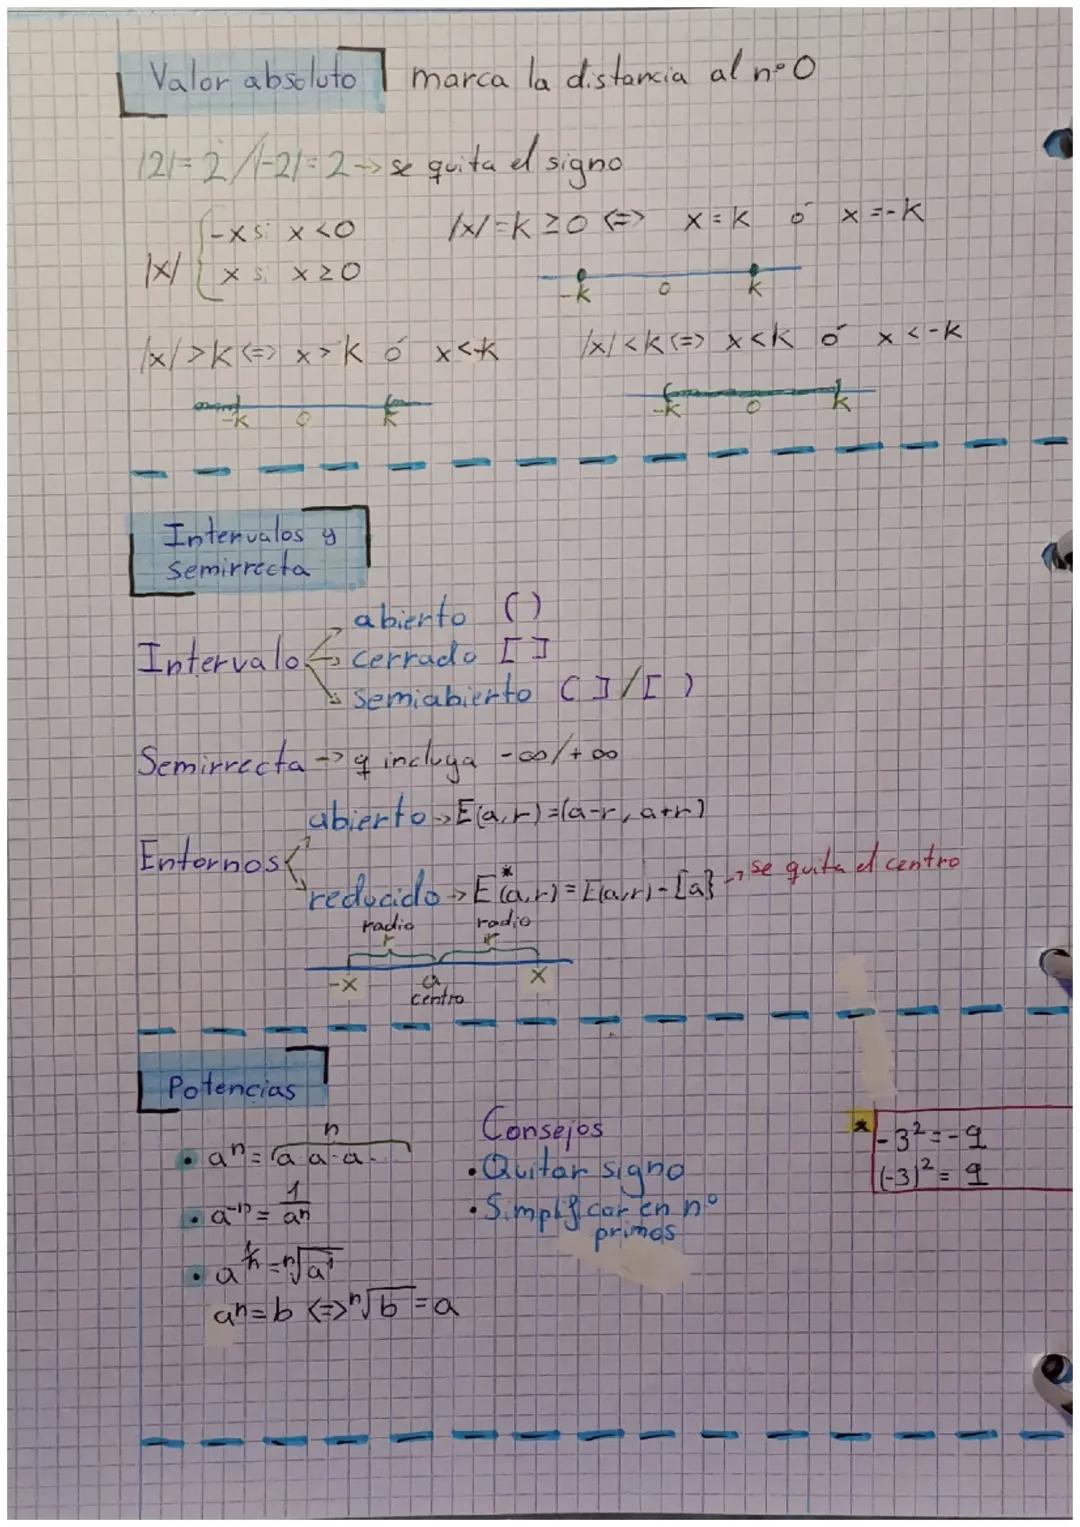 Valor absoluto marca la distancia al nº 0
|2|= 2 / |-2| = 2 → se quita el signo
|x| { -x si x < 0
x si x ≥ 0
|x| = k ≥ 0 <=> x = k ó x = -k
-k 0 k
|x| > k <=> x > k ó x < -k
-k 0 k
|x| < k <=> x < k ó x < -k
-k 0 k
Intervalos y
semirrecta
Intervalo
abierto ( )
cerrado [ ]
semiabierto ( ] / [ )
Semirrecta → q incluya -∞/+∞
Entornos
abierto → E(a,r) = (a-r, a+r)
reducido → E*(a,r) = E(a,r) - {a} → se quita el centro
radio radio
r r
-x a x
centro
Potencias
n
• aⁿ = a·a·a·
• a⁻ⁿ = 1/aⁿ
• a^1/n = ⁿ√a¹
aⁿ = b <=> ⁿ√b = a
Consejos
• Quitar signo
• Simplificar en nº
primos
* -3² = -9
(-3)² = 9